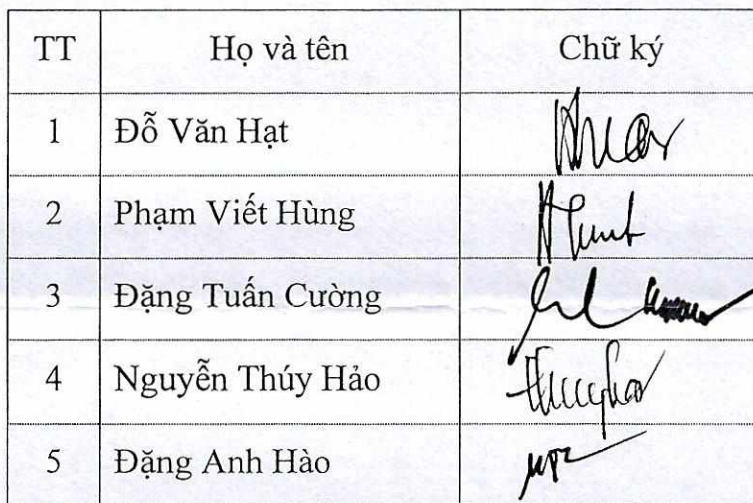 TT Họ và tên Chữ ký
1 Đỗ Văn Hạt
2 Phạm Viết Hùng
3 Đặng Tuấn Cường
4 Nguyễn Thúy Hảo
5 Đặng Anh Hào